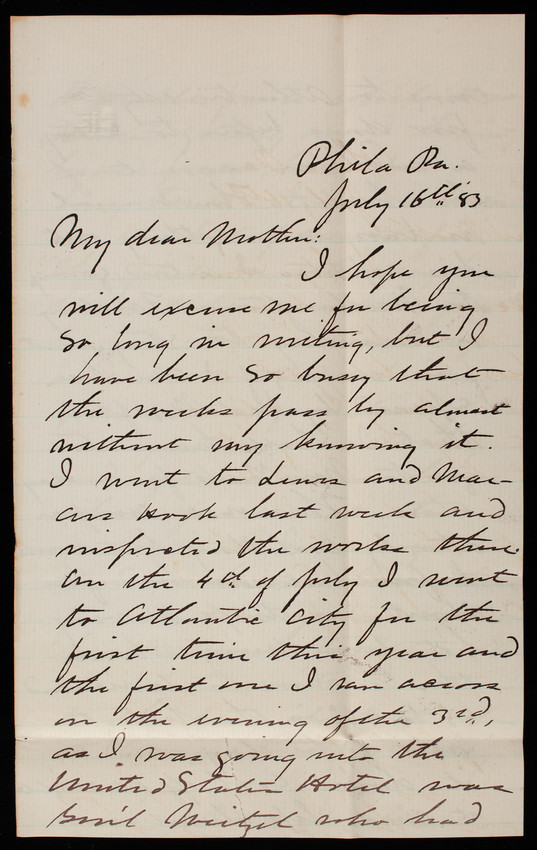 Phila Pa.
July 16th 83
My dear Mother:
I hope you
will excuse me for being
so long in writing, but I
have been so busy that
the weeks pass by almost
without my knowing it.
I went to Lewes and Mar-
cus Hook last week and
inspected the works there.
On the 4th of July I went
to Atlantic City for the
first time this year and
the first one I ran across
on the evening of the 3rd,
as I was going into the
United States Hotel was
Gen'l Weitzel who had